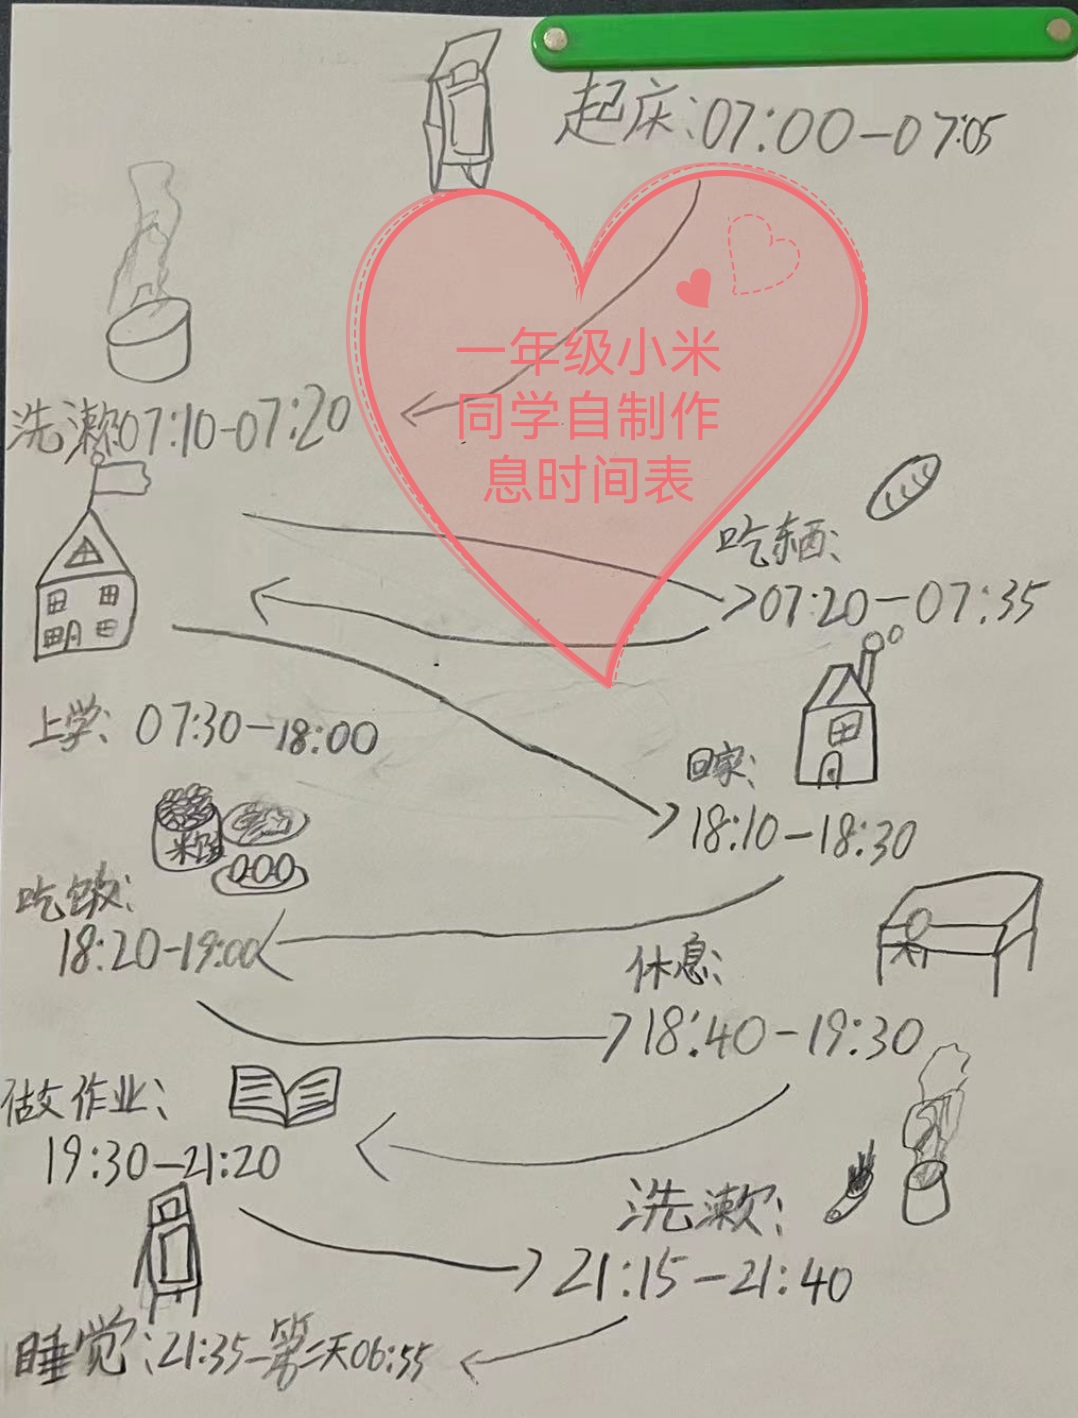 起床:07:00-07:05
洗漱07:10-07:20
一年级小米
同学自制作
息时间表
吃东西:
07:20-07:35
上学:07:30-18:00
回家:
18:10-18:30
米饭
吃饭:
18:20-19:00
休息:
18:40-19:30
做作业:
19:30-21:20
洗漱:
21:15-21:40
睡觉:21:35-第二天06:55